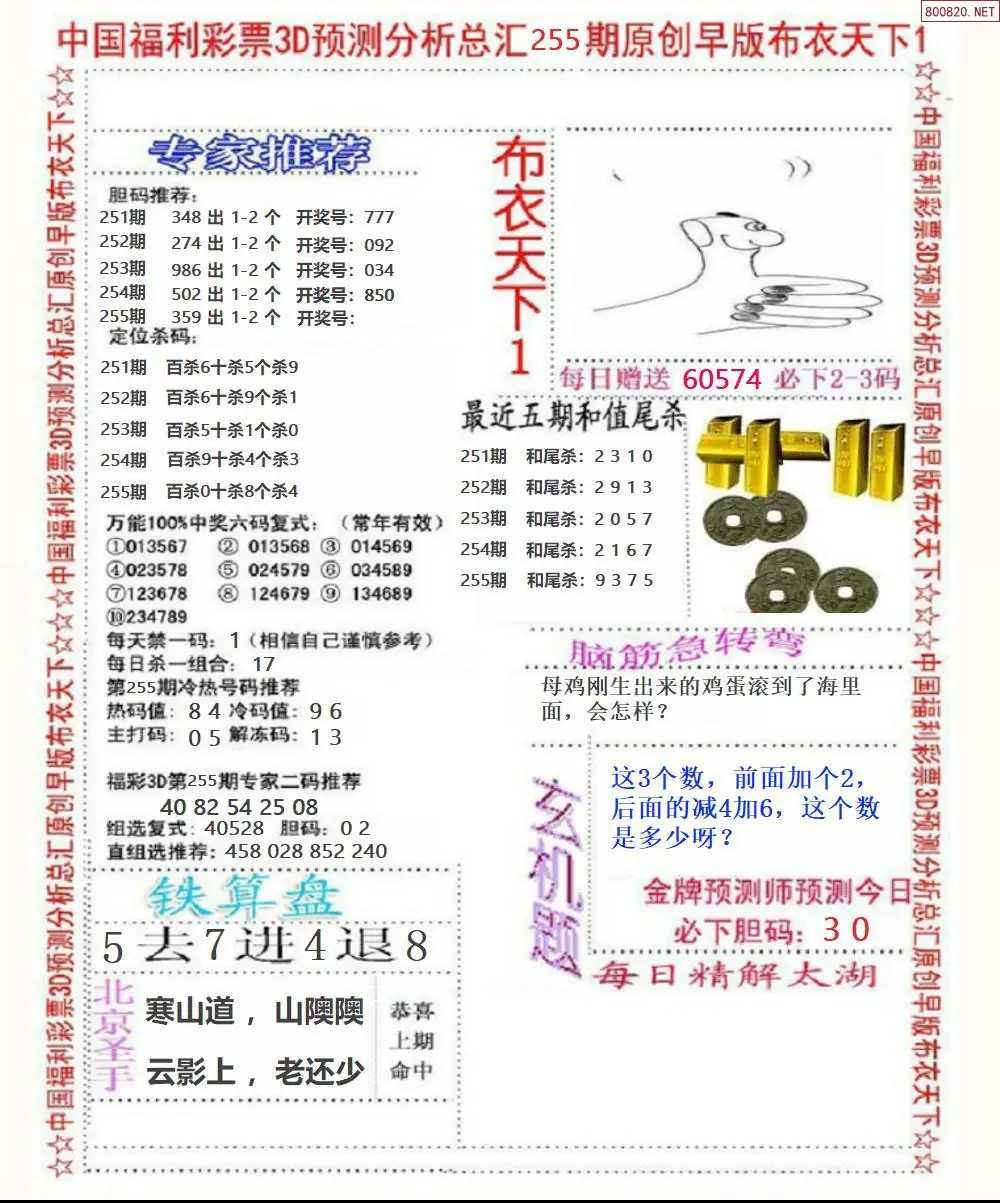 800820.NET
中国福利彩票3D预测分析总汇255期原创早版布衣天下1
☆☆中国福利彩票3D预测分析总汇原创早版布衣天下☆☆中国福利彩票3D预测分析总汇原创早版布衣天下☆☆
专家推荐
胆码推荐:
251期 348 出 1-2 个 开奖号: 777
252期 274 出 1-2 个 开奖号: 092
253期 986 出 1-2 个 开奖号: 034
254期 502 出 1-2 个 开奖号: 850
255期 359 出 1-2 个 开奖号:
定位杀码:
251期 百杀6十杀5个杀9
252期 百杀6十杀9个杀1
253期 百杀5十杀1个杀0
254期 百杀9十杀4个杀3
255期 百杀0十杀8个杀4
万能100%中奖六码复式: (常年有效)
①013567 ② 013568 ③ 014569
④023578 ⑤ 024579 ⑥ 034589
⑦123678 ⑧ 124679 ⑨ 134689
⑩234789
每天禁一码: 1(相信自己谨慎参考)
每日杀一组合: 17
第255期冷热号码推荐
热码值: 8 4 冷码值: 9 6
主打码: 0 5 解冻码: 1 3
福彩3D第255期专家二码推荐
40 82 54 25 08
组选复式: 40528 胆码: 0 2
直组选推荐: 458 028 852 240
铁算盘
5去7进4退8
北京圣手
寒山道，山隩隩
云影上，老还少
恭喜
上期
命中
布衣天下1
每日赠送 60574 必下2-3码
最近五期和值尾杀
251期 和尾杀: 2 3 1 0
252期 和尾杀: 2 9 1 3
253期 和尾杀: 2 0 5 7
254期 和尾杀: 2 1 6 7
255期 和尾杀: 9 3 7 5
脑筋急转弯
母鸡刚生出来的鸡蛋滚到了海里
面，会怎样？
玄机题
这3个数，前面加个2，
后面的减4加6，这个数
是多少呀？
金牌预测师预测今日
必下胆码: 3 0
每日精解太湖
☆☆中国福利彩票3D预测分析总汇原创早版布衣天下☆☆中国福利彩票3D预测分析总汇原创早版布衣天下☆☆